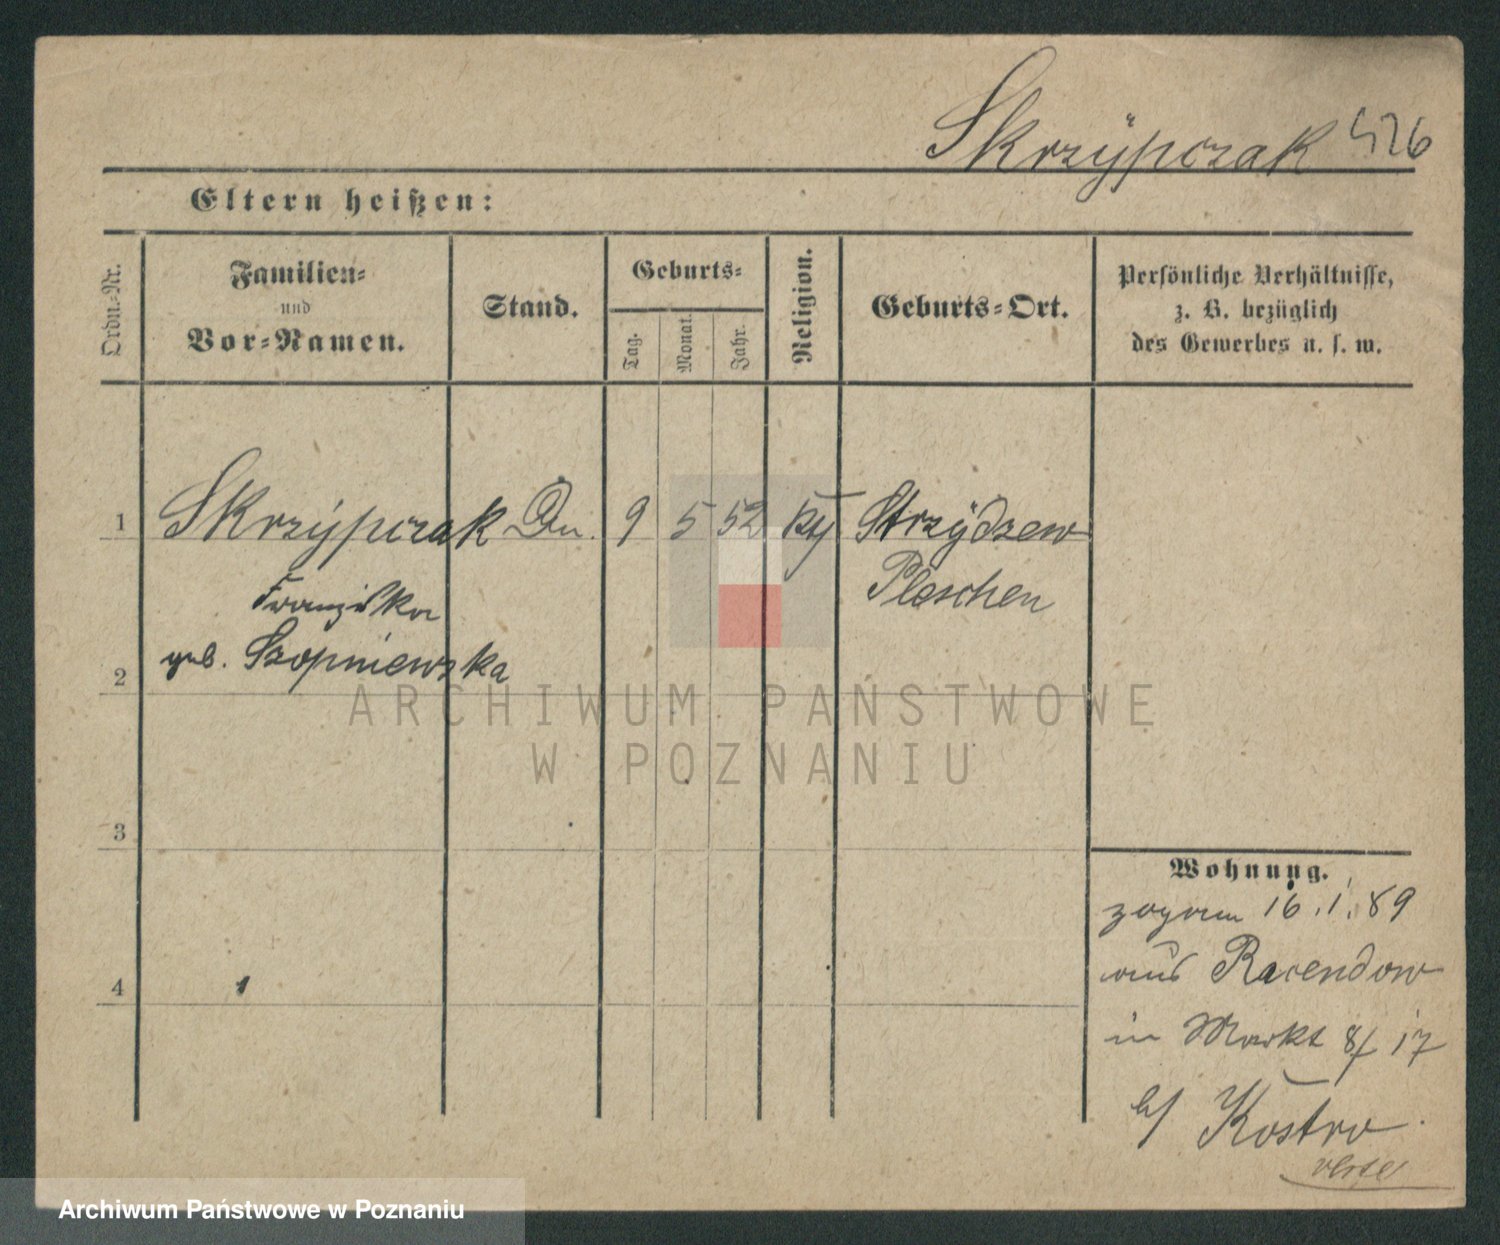 Skrzypczak 426
Eltern heißen:
Ordn.-Nr.
Familien-
und
Vor-Namen.
Stand.
Geburts-
Tag.
Monat.
Jahr.
Religion.
Geburts-Ort.
Persönliche Verhältnisse,
z. B. bezüglich
des Gewerbes u. s. w.
1 Skrzypczak 9 5 52 Strzydzew
Franziska Pleschen
geb. Szopniewska
2
3
4
Wohnung.
zogam 16.1.89
aus Racendow
in Markt 8/17
b/ Kostro
ARCHIWUM PAŃSTWOWE
W POZNANIU
Archiwum Państwowe w Poznaniu